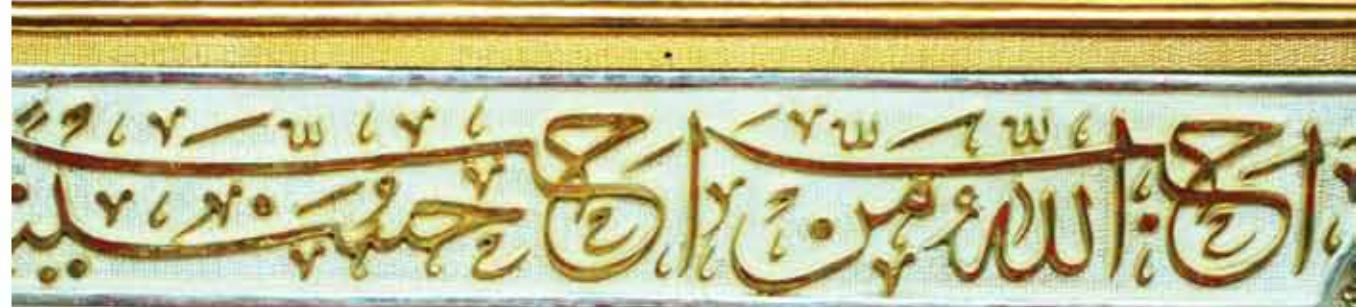 احب الله من احب حسين